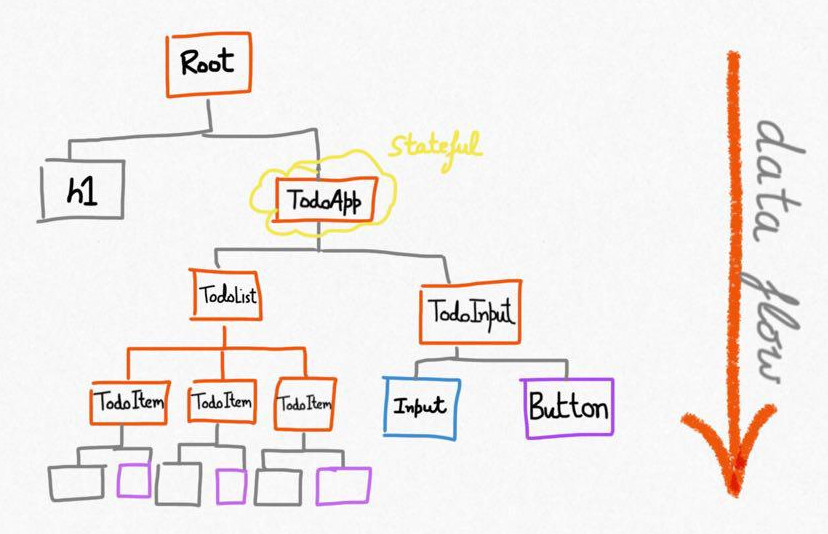 Root
Stateful
h1
TodoApp
TodoList
TodoInput
TodoItem
TodoItem
TodoItem
Input
Button
data flow